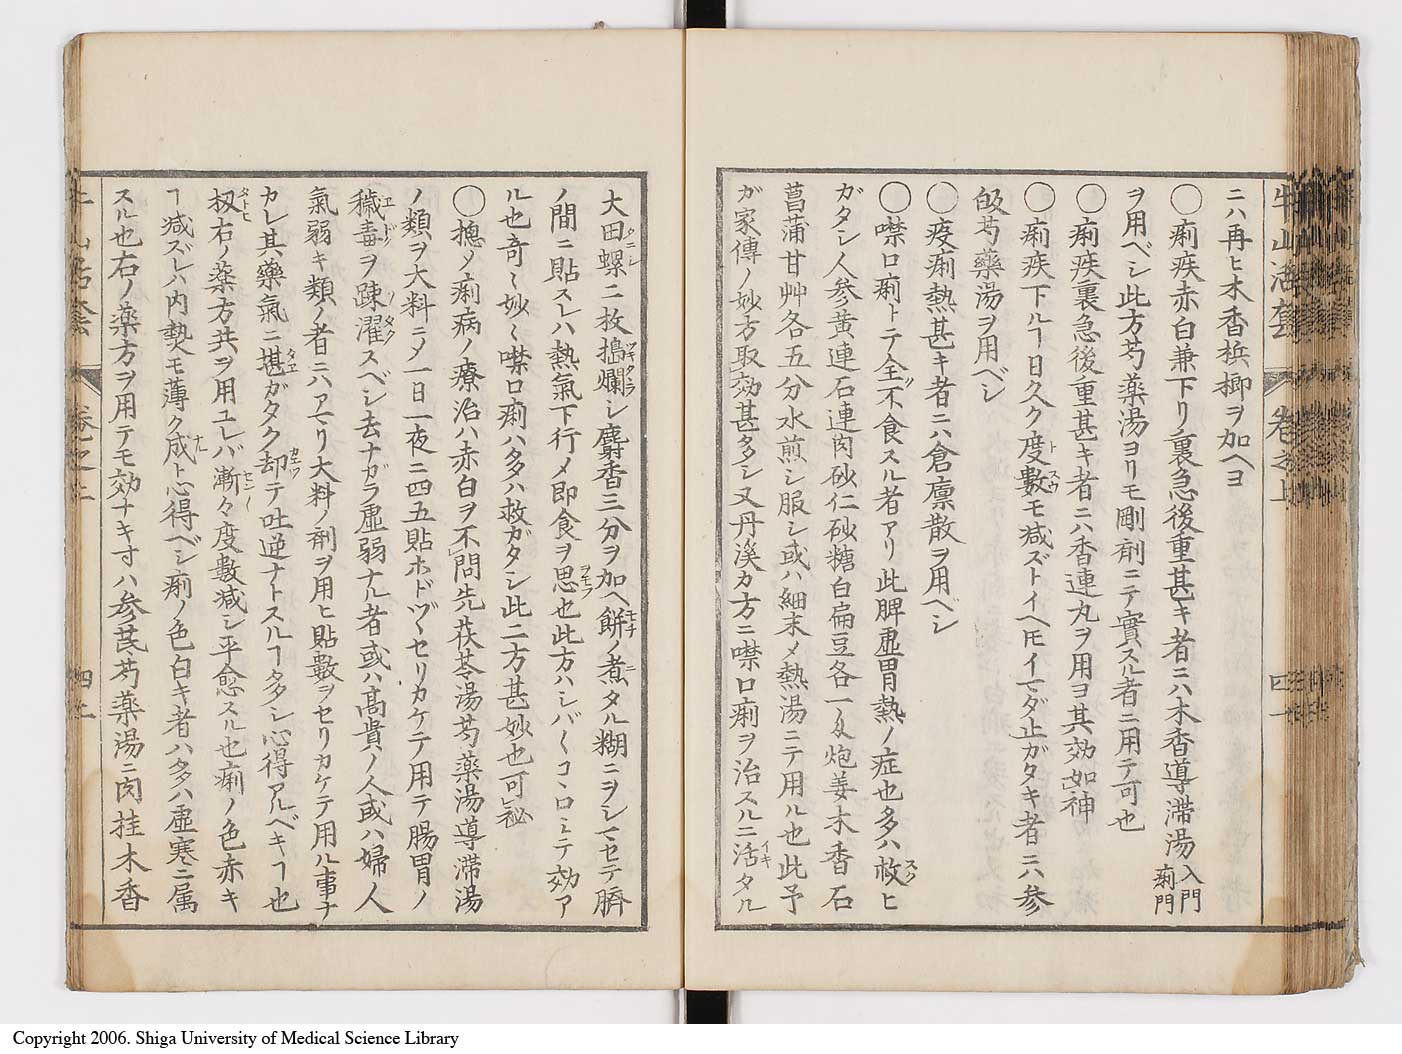 ニハ再ヒ木香梹榔ヲ加ヘヨ
◯痢疾赤白兼下リ裏急後重甚キ者ニハ木香導滞湯入門痢門
ヲ用ベシ此方芍薬湯ヨリモ剛剤ニテ實スル者ニ用テ可也
◯痢疾裏急後重甚キ者ニハ香連丸ヲ用ヨ其効如神
◯痢疾下ルヿ日久ク度數モ減ズトイヘ𪜈イマダ止ガタキ者ニハ参
芍藥湯ヲ用ベシ
◯疫痢熱甚キ者ニハ倉廪散ヲ用ベシ
◯噤口痢トテ全ク不食スル者アリ此脾虚胃熱ノ症也多ハ救ヒ
ガタシ人参黄連石連肉砂仁砂糖白扁豆各一匁炮姜木香石
菖蒲甘艸各五分水煎シ服シ或ハ細末メ熱湯ニテ用ル也此予
ガ家傳ノ妙方取効甚多シ又丹溪カ方ニ噤口痢ヲ治スルニ活タル
大田螺二枚搗爛シ麝香三分ヲ加ヘ餅ノ煮タル糊ニヲシマセテ臍
ノ間ニ貼スレハ熱氣下行メ即食ヲ思也此方ハシバ〱コヽロミテ効ア
ル也奇〻妙〻噤口痢ハ多ハ救ガタシ此二方甚妙也可秘
◯摠メ痢病ノ療治ハ赤白ヲ不問先茯苓湯芍薬湯導滞湯
ノ類ヲ大料ニメ一日一夜ニ四五貼ホドヅヽセリカケテ用テ腸胃ノ
穢毒ヲ踈濯スベシ去ナガラ虚弱ナル者或ハ髙貴ノ人或ハ婦人
氣弱キ類ノ者ニハアマリ大料ノ剤ヲ用ヒ貼數ヲセリカケテ用ル事ナ
カレ其藥氣ニ堪ガタク却テ吐逆ナトスルヿ多シ心得アルベキヿ也
扨右ノ薬方共ヲ用ユレバ漸々度數減シ平愈スル也痢ノ色赤キ
ヿ減ズレハ内熱モ薄ク成ト心得ベシ痢ノ色白キ者ハ多ハ虚寒ニ属
スル也右ノ薬方ヲ用テモ効ナキ寸ハ参芪芍薬湯ニ肉桂木香
牛山活套
卷之上
Copyright 2006. Shiga University of Medical Science Library